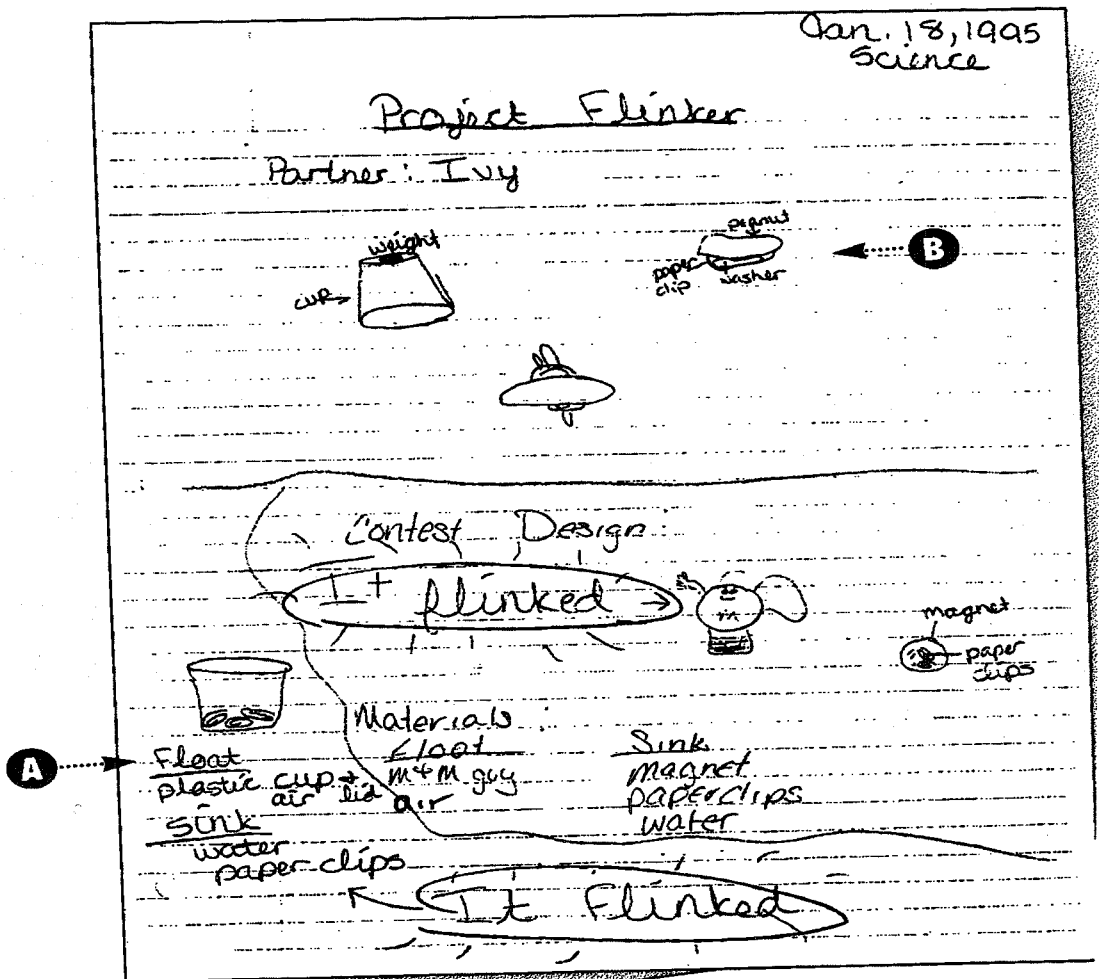 Jan. 18, 1995
Science
Project Flinker
Partner: Ivy
weight
cup
peanut
paper clip
washer
B
Contest Design:
It flinked
magnet
paper clips
A
Float
plastic cup + lid
air
Sink
water
paper clips
Materials:
Float
m+m guy
air
Sink
magnet
paperclips
water
It Flinked